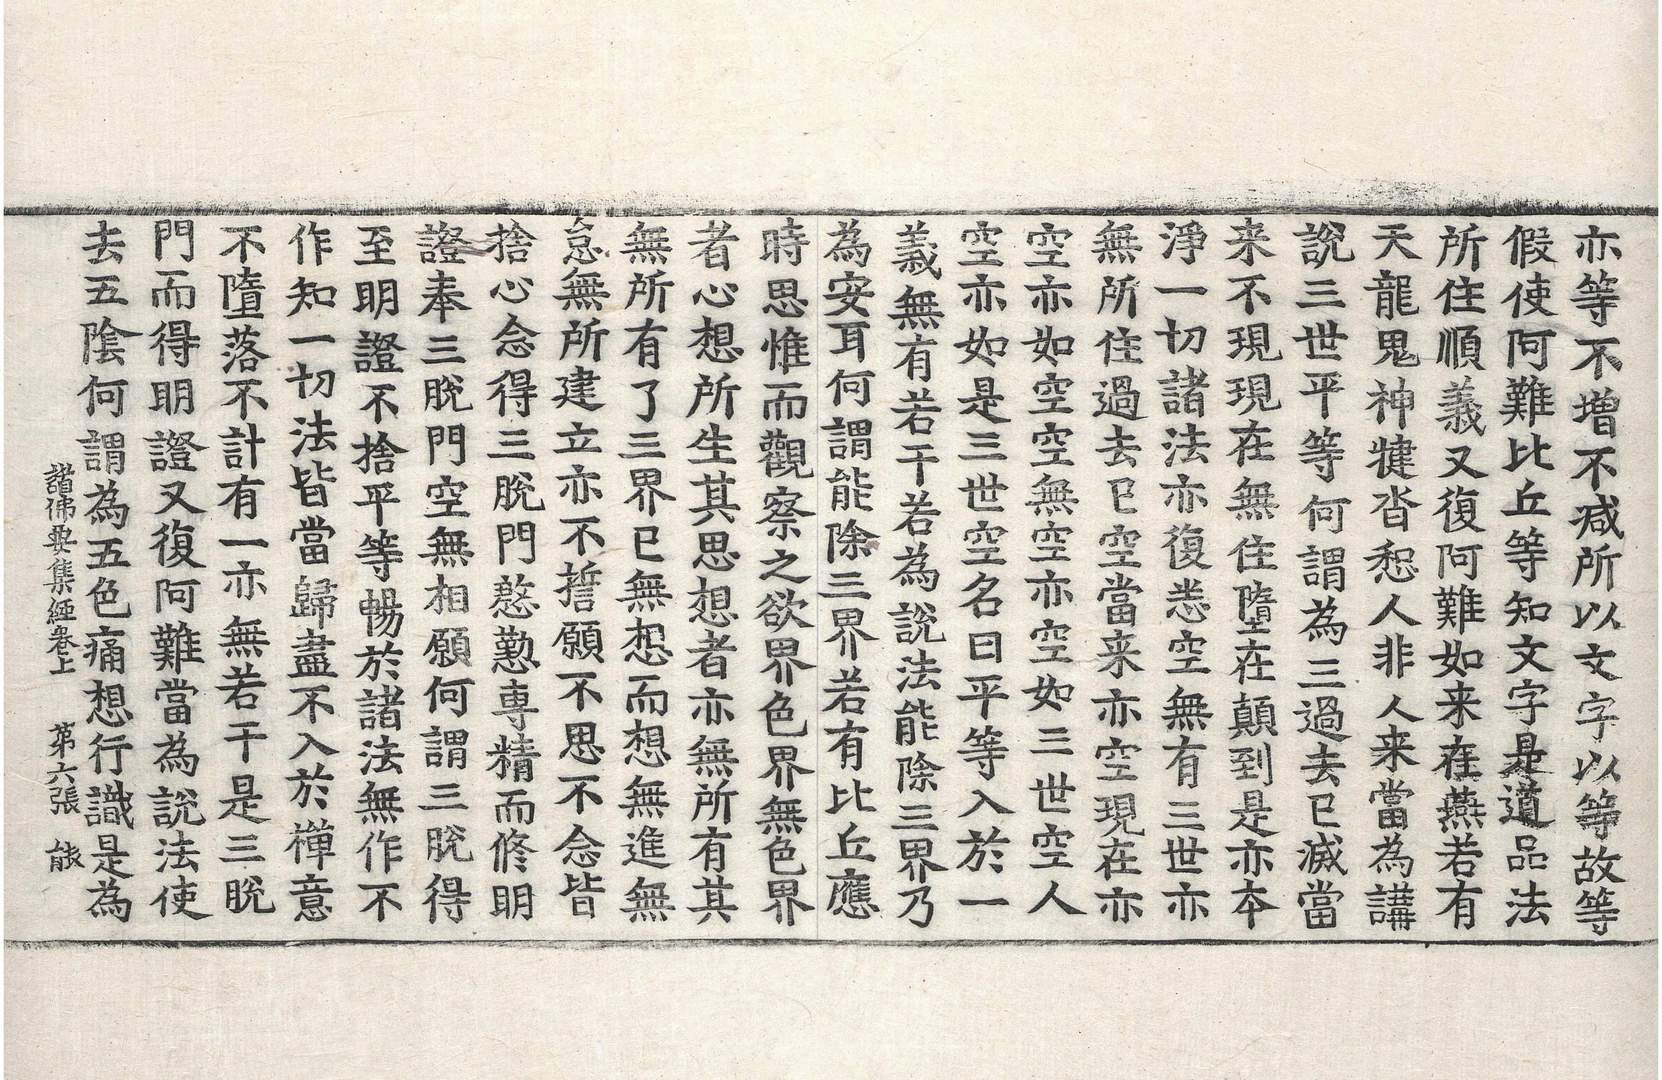 亦等不增不减所以文字以等故等
假使阿難比丘等知文字是道品法
所住順義又復阿難如来在燕若有
天龍鬼神犍沓惒人非人来當為講
說三世平等何謂為三過去已滅當
来不現現在無住墮在顛到是亦本
淨一切諸法亦復悉空無有三世亦
無所住過去已空當来亦空現在亦
空亦如空空無空亦空如三世空人
空亦如是三世空名曰平等入於一
義無有若干若為說法能除三界乃
為安耳何謂能除三界若有比丘應
時思惟而觀察之欲界色界無色界
者心想所生其思想者亦無所有其
無所有了三界已無想而想無進無
怠無所建立亦不誓願不思不念皆
捨心念得三脫門慇懃専精而修明
證奉三脫門空無相願何謂三脫得
至明證不捨平等暢於諸法無作不
作知一切法皆當歸盡不入於禪意
不墮落不計有一亦無若干是三脫
門而得明證又復阿難當為說法使
去五陰何謂為五色痛想行識是為
諸佛要集經卷上 第六張 能